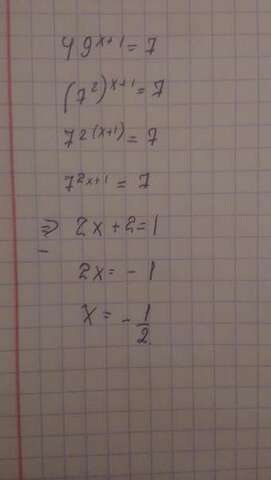 49^{x+1} = 7
(7^2)^{x+1} = 7
7^{2(x+1)} = 7
7^{2x+1} = 7
⇒ 2x + 2 = 1
2x = - 1
x = - \frac{1}{2}